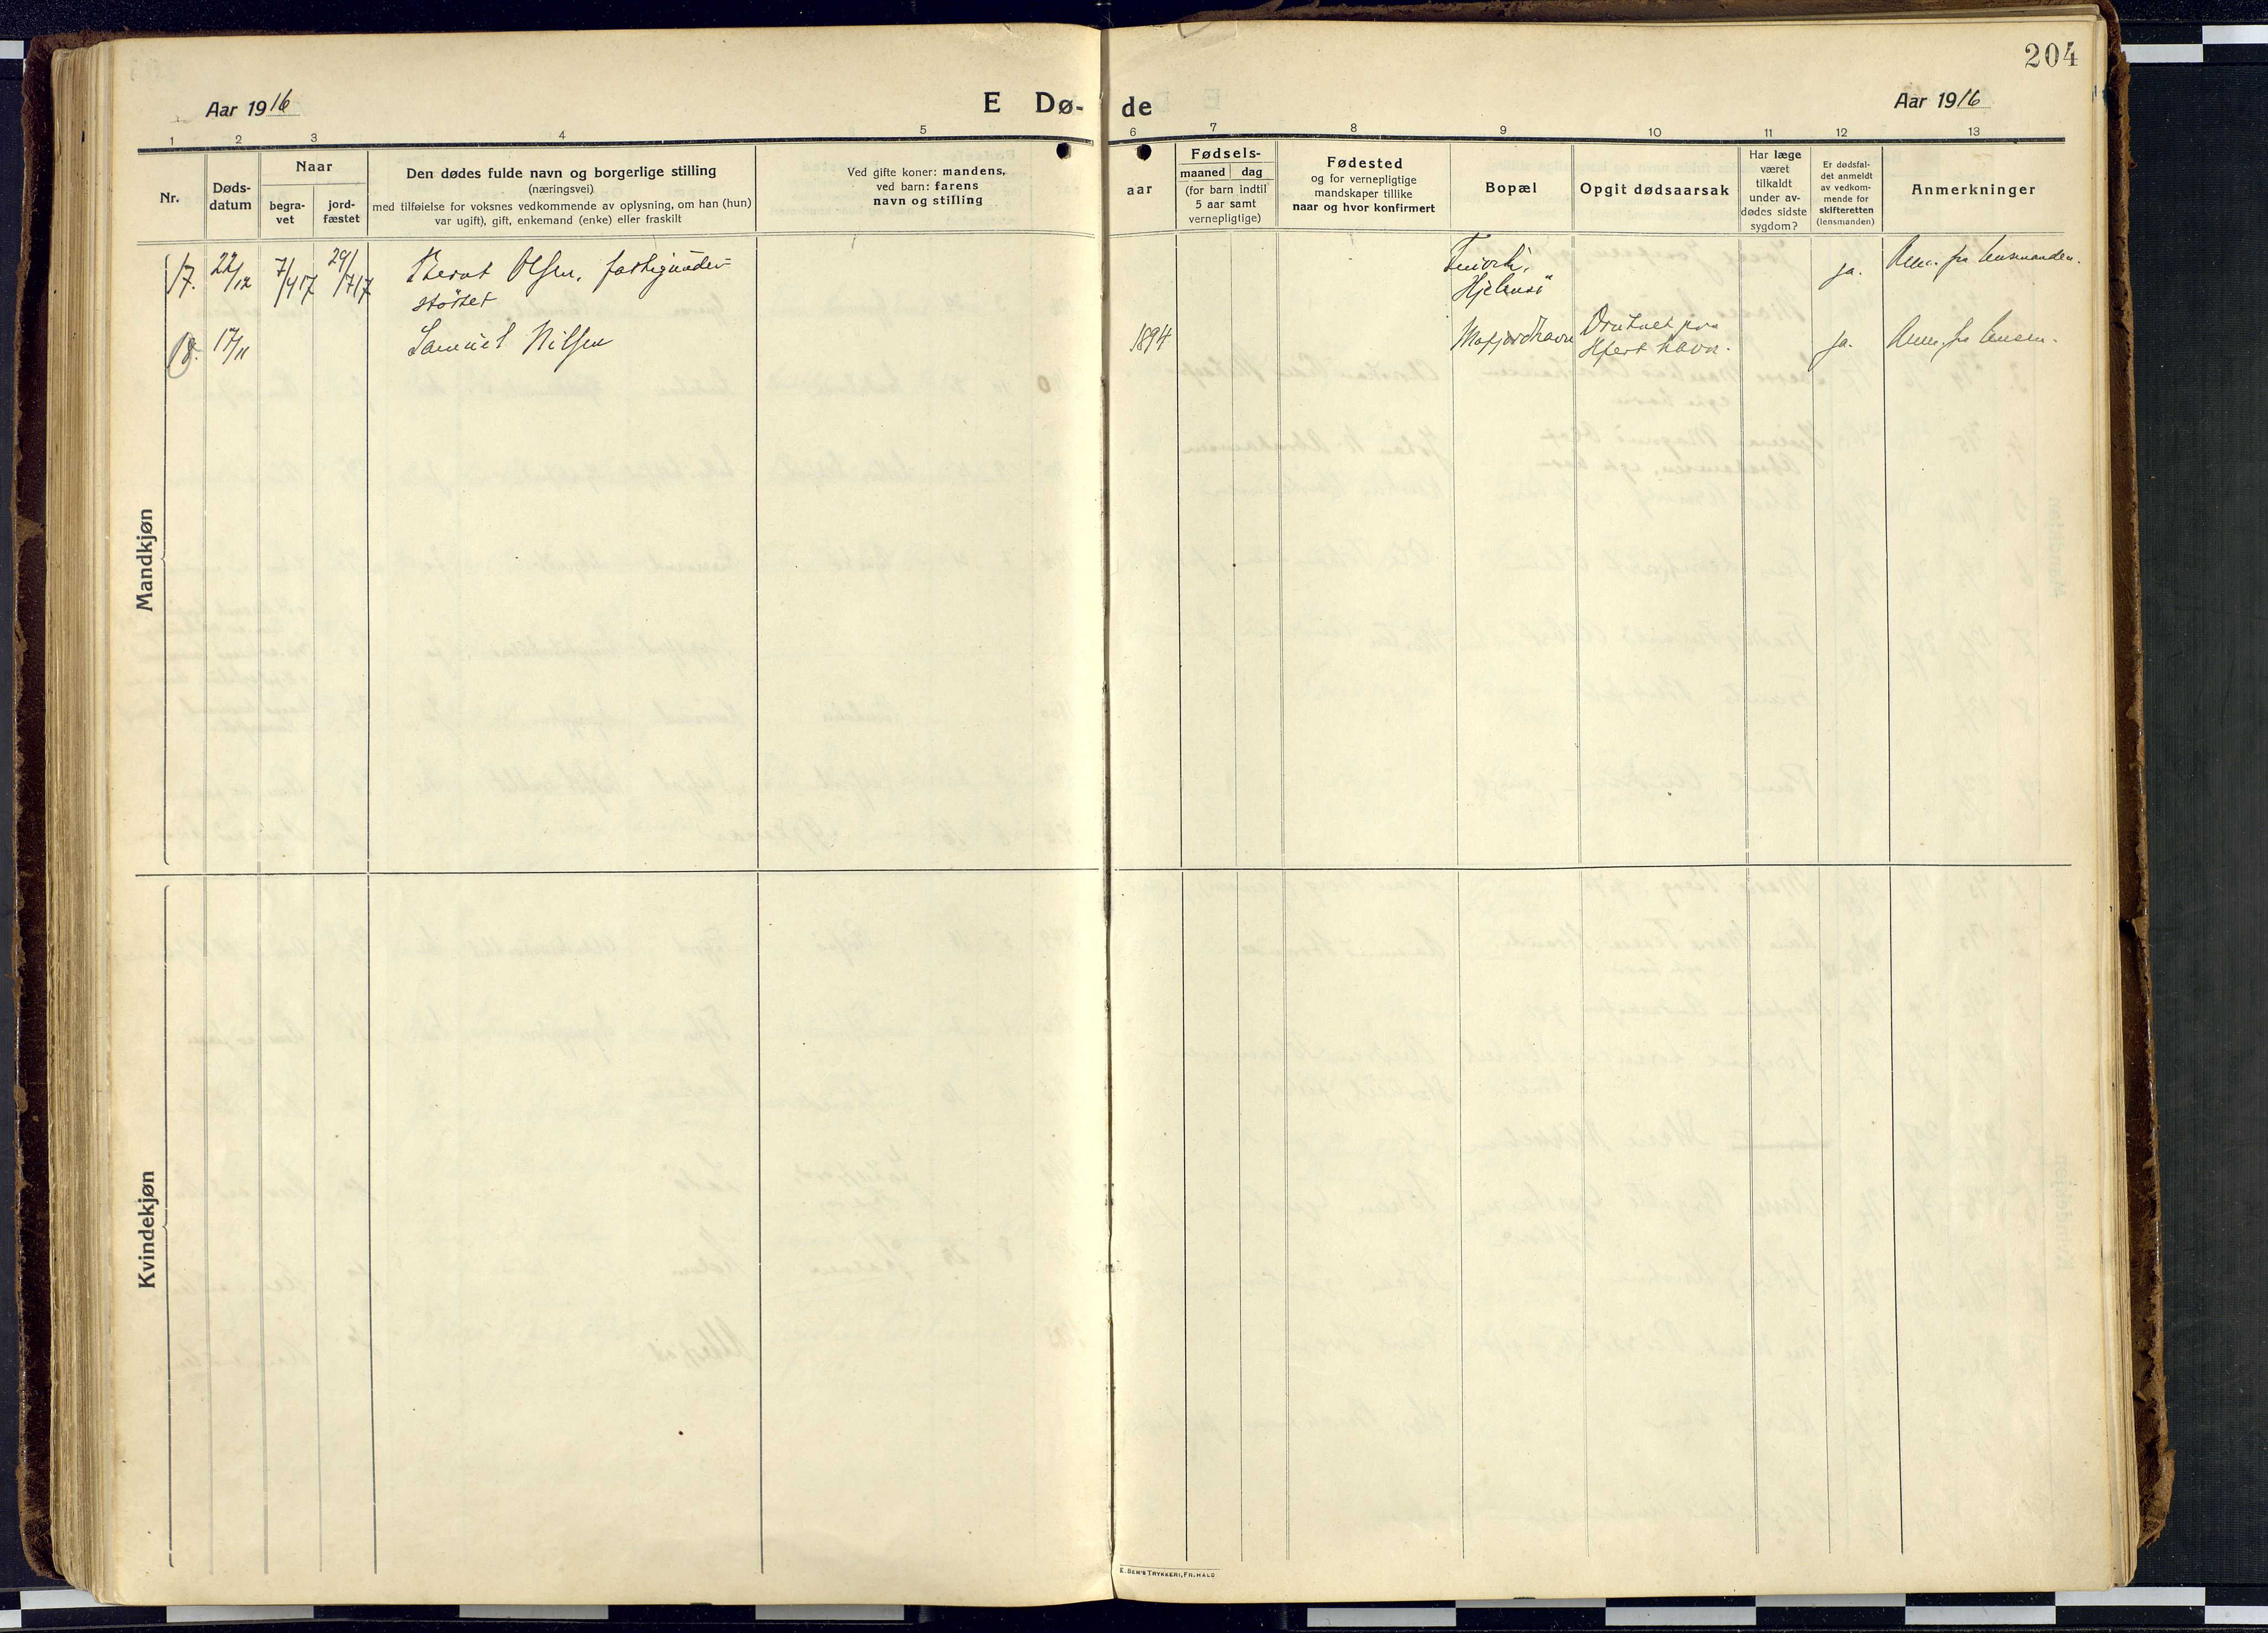 204
Aar 1916
E Dø-
de
Aar 1916
1 2 3 4 5 6 7 8 9 10 11 12 13
Nr.
Døds-
datum
Naar
begra-
vet
jord-
fæstet
Den dødes fulde navn og borgerlige stilling
(næringsvei)
med tilføielse for voksnes vedkommende av oplysning, om han (hun)
var ugift), gift, enkemand (enke) eller fraskilt
Ved gifte koner: mandens,
ved barn: farens
navn og stilling
aar
Fødsels-
maaned dag
(for barn indtil
5 aar samt
vernepligtige)
Fødested
og for vernepligtige
mandskaper tillike
naar og hvor konfirmert
Bopæl
Opgit dødsaarsak
Har læge
været
tilkaldt
under av-
dødes sidste
sygdom?
Er dødsfal-
det anmeldt
av vedkom-
mende for
skifteretten
(lensmanden)
Anmerkninger
Mandkjøn
17. 22/12 7/4 17 29/7 17 Bernt Olsen, fattigunder-
støttet
Hjelmsö
ja. Anm. fra lensmanden.
18. 17/11 Samuel Nilsen 1894 Mafjordhavn Druknet paa
havn.
ja. Anm. fra lensm.
Kvindekjøn
E. Sem's Trykkeri, Fr.hald